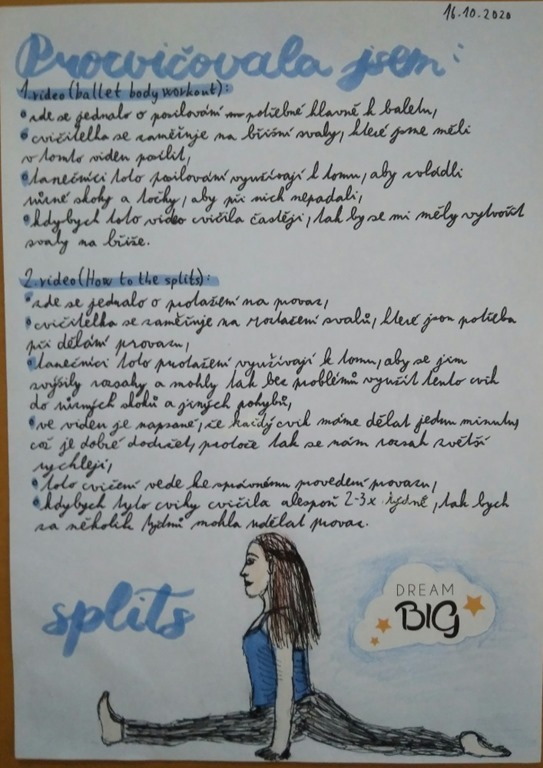 16.10.2020
Procvičovala jsem:
1. video (ballet body workout):
• zde se jednalo o posilování potřebné hlavně k baletu,
• cvičitelka se zaměřuje na břišní svaly, které jsme měli
v tomto videu posílit,
• tanečníci toto posilování využívají k tomu, aby zvládli
různé skoky a točky, aby při nich nepadali,
• kdybych toto video cvičila častěji, tak by se mi měly vytvořit
svaly na břiše.
2. video (How to the splits):
• zde se jednalo o protažení na provaz,
• cvičitelka se zaměřuje na roztažení svalů, které jsou potřeba
při dělání provazu,
• tanečníci toto protažení využívají k tomu, aby se jim
zvýšily rozsahy a mohly tak bez problémů využít tento cvik
do různých skoků a jiných pohybů,
• ve videu je napsané, že každý cvik máme dělat jednu minutu,
což je dobré dodržet, protože tak se nám rozsah zvětší
rychleji,
• toto cvičení vede ke správnému provedení provazu,
• kdybych tyto cviky cvičila alespoň 2-3x týdně, tak bych
za několik týdnů mohla udělat provaz.
splits
DREAM
BIG